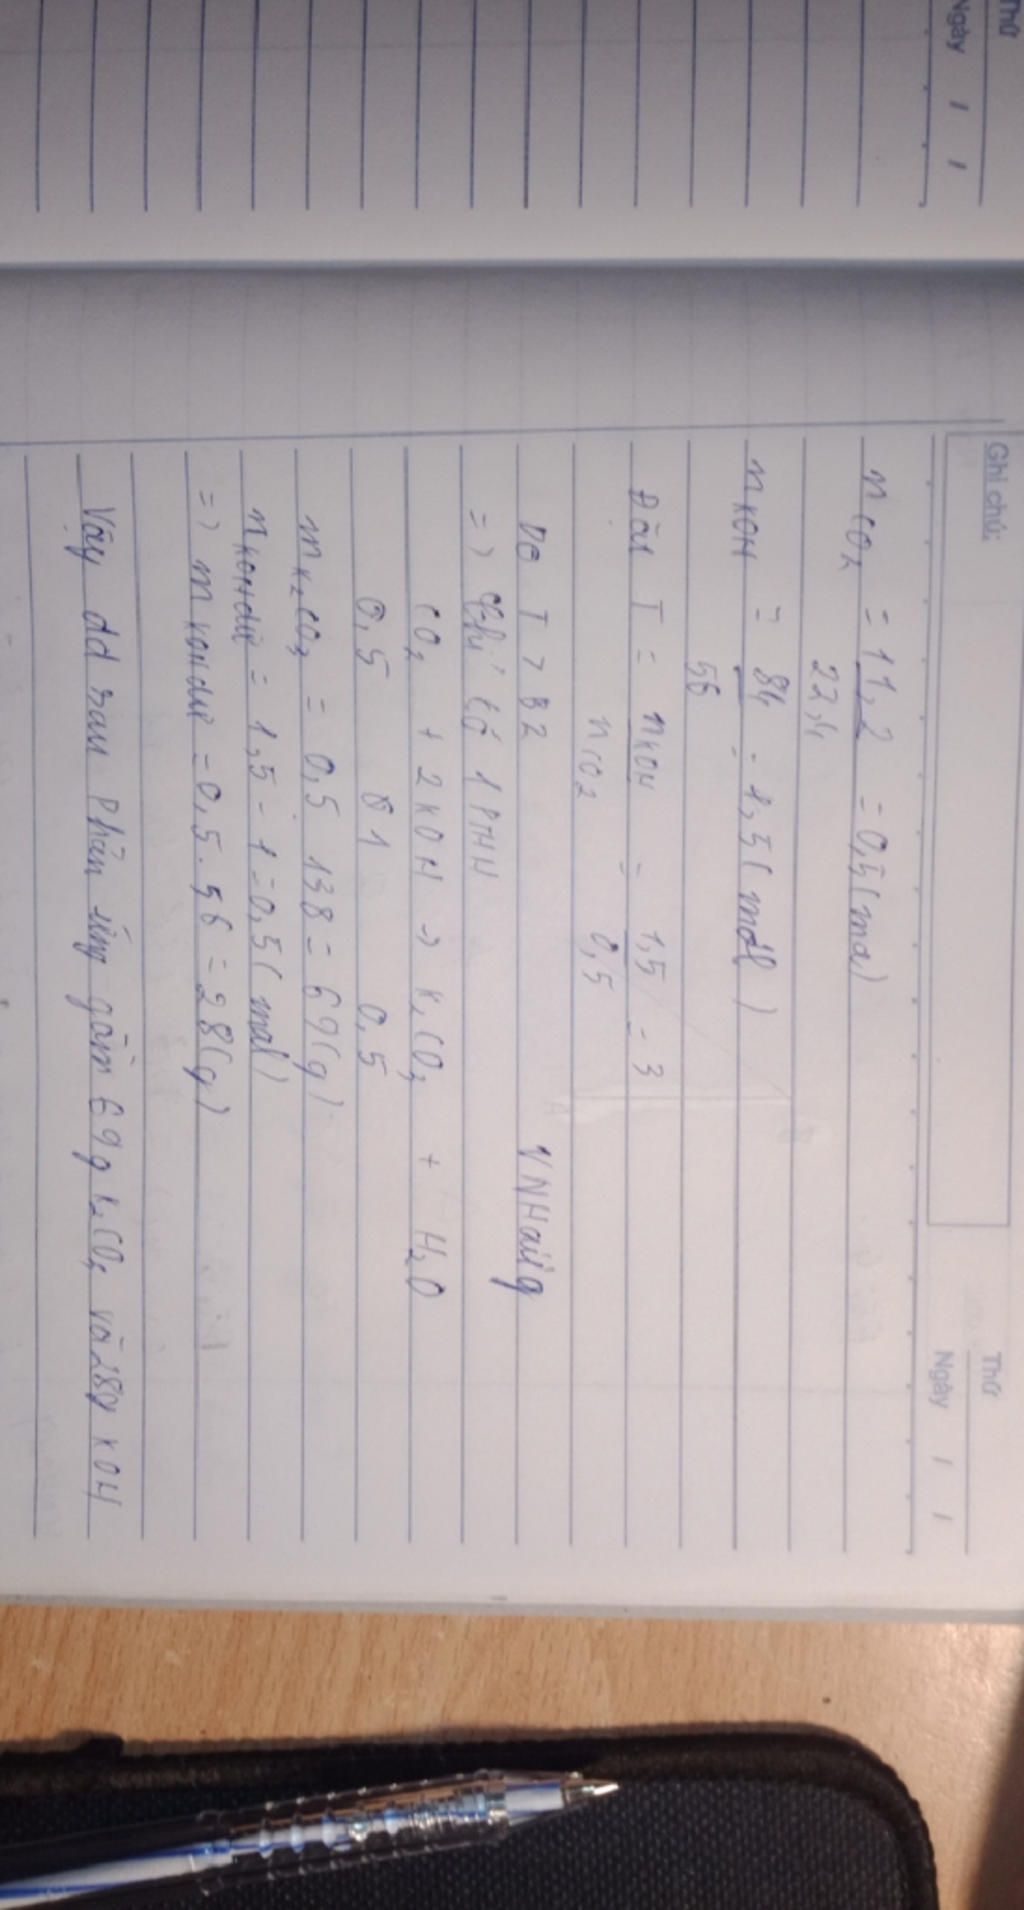 Thứ
Ngày / /
Ghi chú:
Thứ
Ngày / /
n CO₂ = 11,2 = 0,5(mol)
22,4
n KOH = 84 = 1,5(mol)
56
Đặt T = n KOH = 1,5 = 3
n CO₂ 0,5
Do T > 2 VNHaiig
=> Chỉ có 1 PTHH
CO₂ + 2KOH -> K₂CO₃ + H₂O
0,5 1 0,5
m K₂CO₃ = 0,5 . 138 = 69(g)
n KOH dư = 1,5 - 1 = 0,5(mol)
=> m KOH dư = 0,5 . 56 = 28(g)
Vậy dd sau phản ứng gồm 69g K₂CO₃ và 28g KOH